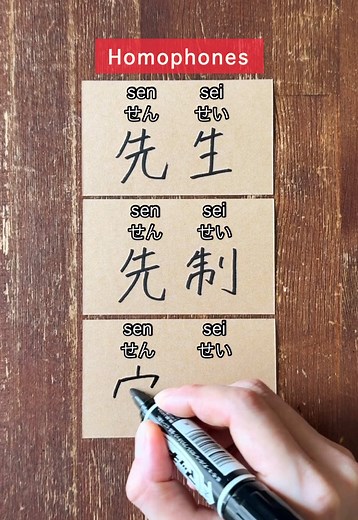 Homophones
sen sei
せん せい
先生
sen sei
せん せい
先制
sen sei
せん せい